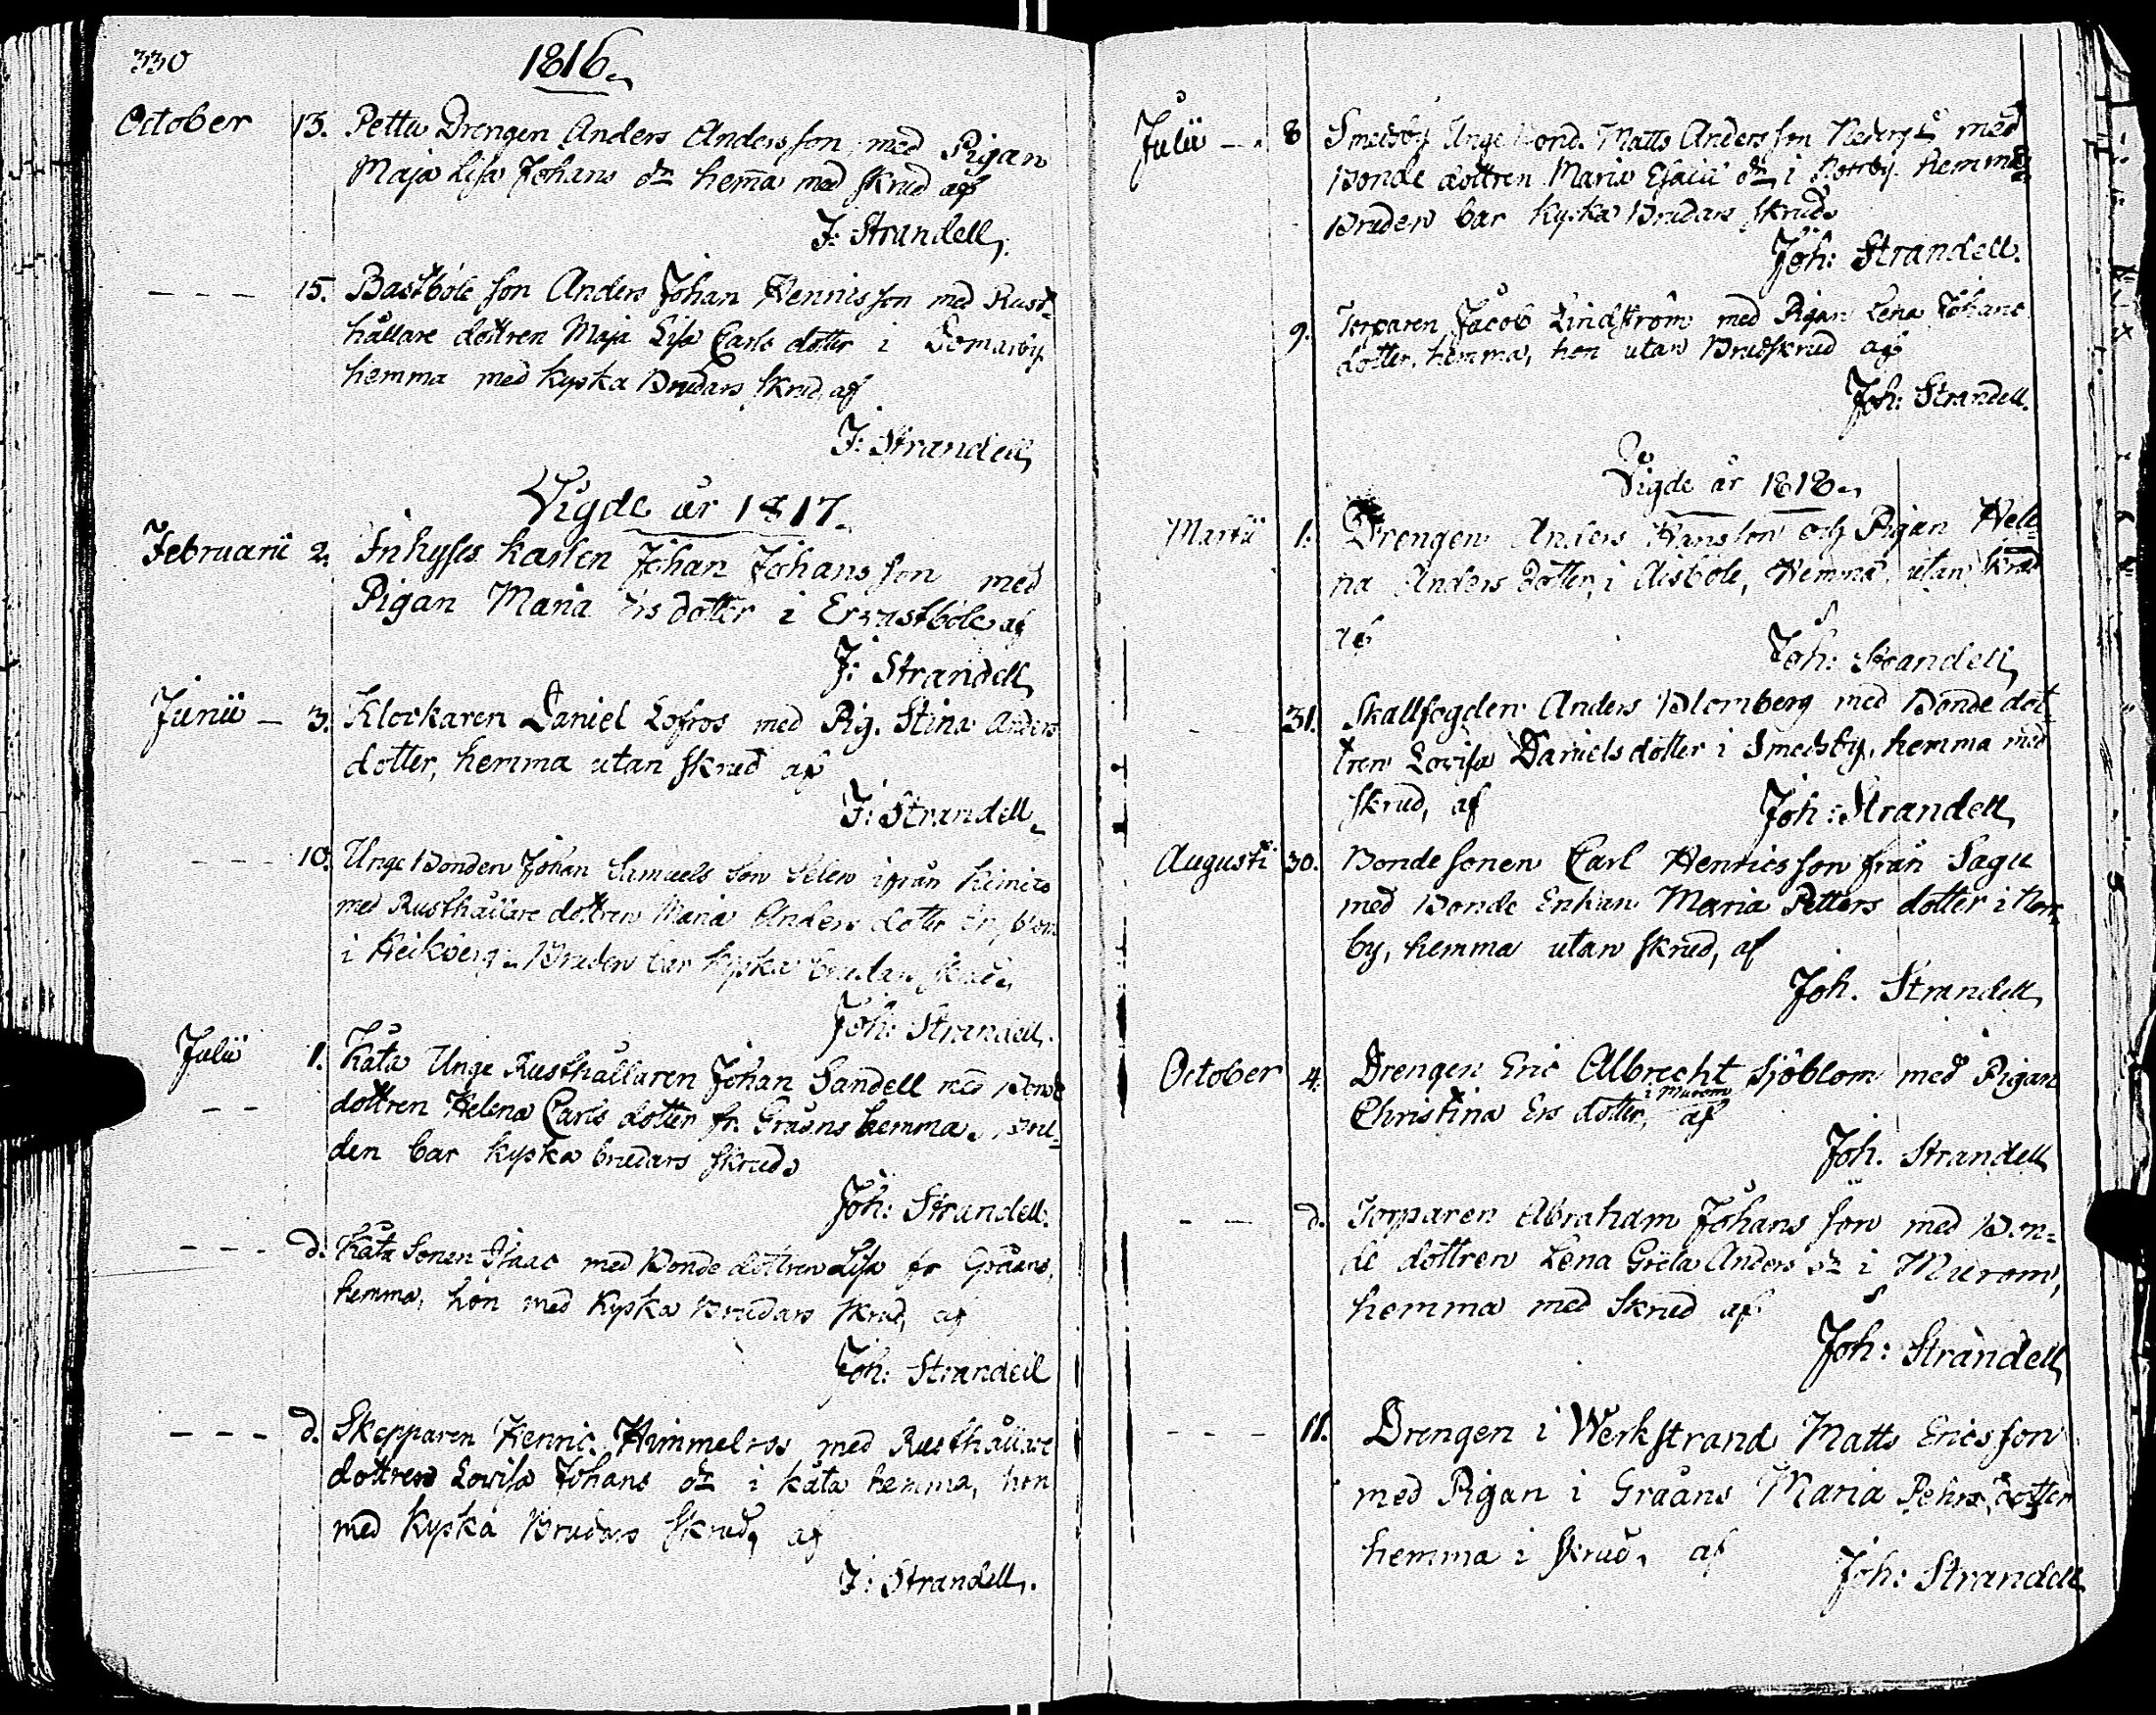 330
1816.
October 13. Petta Drengen Anders Andersson med Pigan
Maja Lisa Johans dr hemma med skrud af
J: Strandell.
15. Bastböle son Anders Johan Hennisson med Rust-
hållare dottren Maja Lisa Carls dotter i Domarby
hemma med kyska Brudars skrud af
J: Strandell
Vigde år 1817.
Februarii 2. Inhyses karlen Johan Johansson med
Pigan Maria Ers dotter i Ernastböle af
J: Strandell
Junii 3. Klockaren Daniel Löfros med Pig. Stina Anders
dotter, hemma utan skrud af
J: Strandell
10. Unge Bonden Johan Samuels son Selen ifrån Kimito
med Rusthållare dottren Maria Anders dotter
i Bruden bar kyska brudars skrud
Joh: Strandell.
Julii 1. Kåta Unge Rusthållaren Johan Sandell med Bonde
dottren Helena Carls dotter fr. Gråäns hemma, Bru-
den bar kyska brudars skrud
Joh: Strandell.
d. Kåta Sonen Isaac med Bonde dottren Lisa fr Gråäns,
hemma, hon med kyska Brudars skrud, af
Joh: Strandell
d. Skepparen Henric Himmelros med Rusthållare
dottren Lovisa Johans dr i Kåta hemma, hon
med kyska Brudars skrud, af
J: Strandell.
Julii 8 Smedsby Unge Bond. Matts Andersson med
Bonde dottren Maria Esaiæ dr i Norrby hemma
Bruden bar kyska Brudars skrud
Joh: Strandell.
9. Torparen Jacob Lindström med Pigan Lena Johans
dotter, hemma, hon utan Brudskrud af
Joh: Strandell.
Vigde år 1818.
Martii 1. Drengen Anders Hansson och Pigan Hele-
na Anders dotter, i Aisböle, Hemma, utan skrud
af
Joh: Strandell
31. Skallfogden Anders Blomberg med Bonde dot
tren Lovisa Daniels dotter i Smedsby, hemma med
skrud, af Joh: Strandell
Augusti 30. Bonde sonen Carl Henricsson från Sagu
med Bonde Enkan Maria Petters dotter i Norr
by, hemma utan skrud, af
Joh. Strandell
October 4. Drengen Eric Albrecht Sjöblom med Pigan
Christina Ers dotter, i Murom af
Joh. Strandell
d. Torparen Abraham Johans son med Bon-
de dottren Lena Greta Anders dr i Murom,
hemma med skrud af
Joh: Strandell
11. Drengen i Werkstrand Matts Ericsson
med Pigan i Gråäns Maria Pehrs dotter
hemma i skrud, af
Joh: Strandell